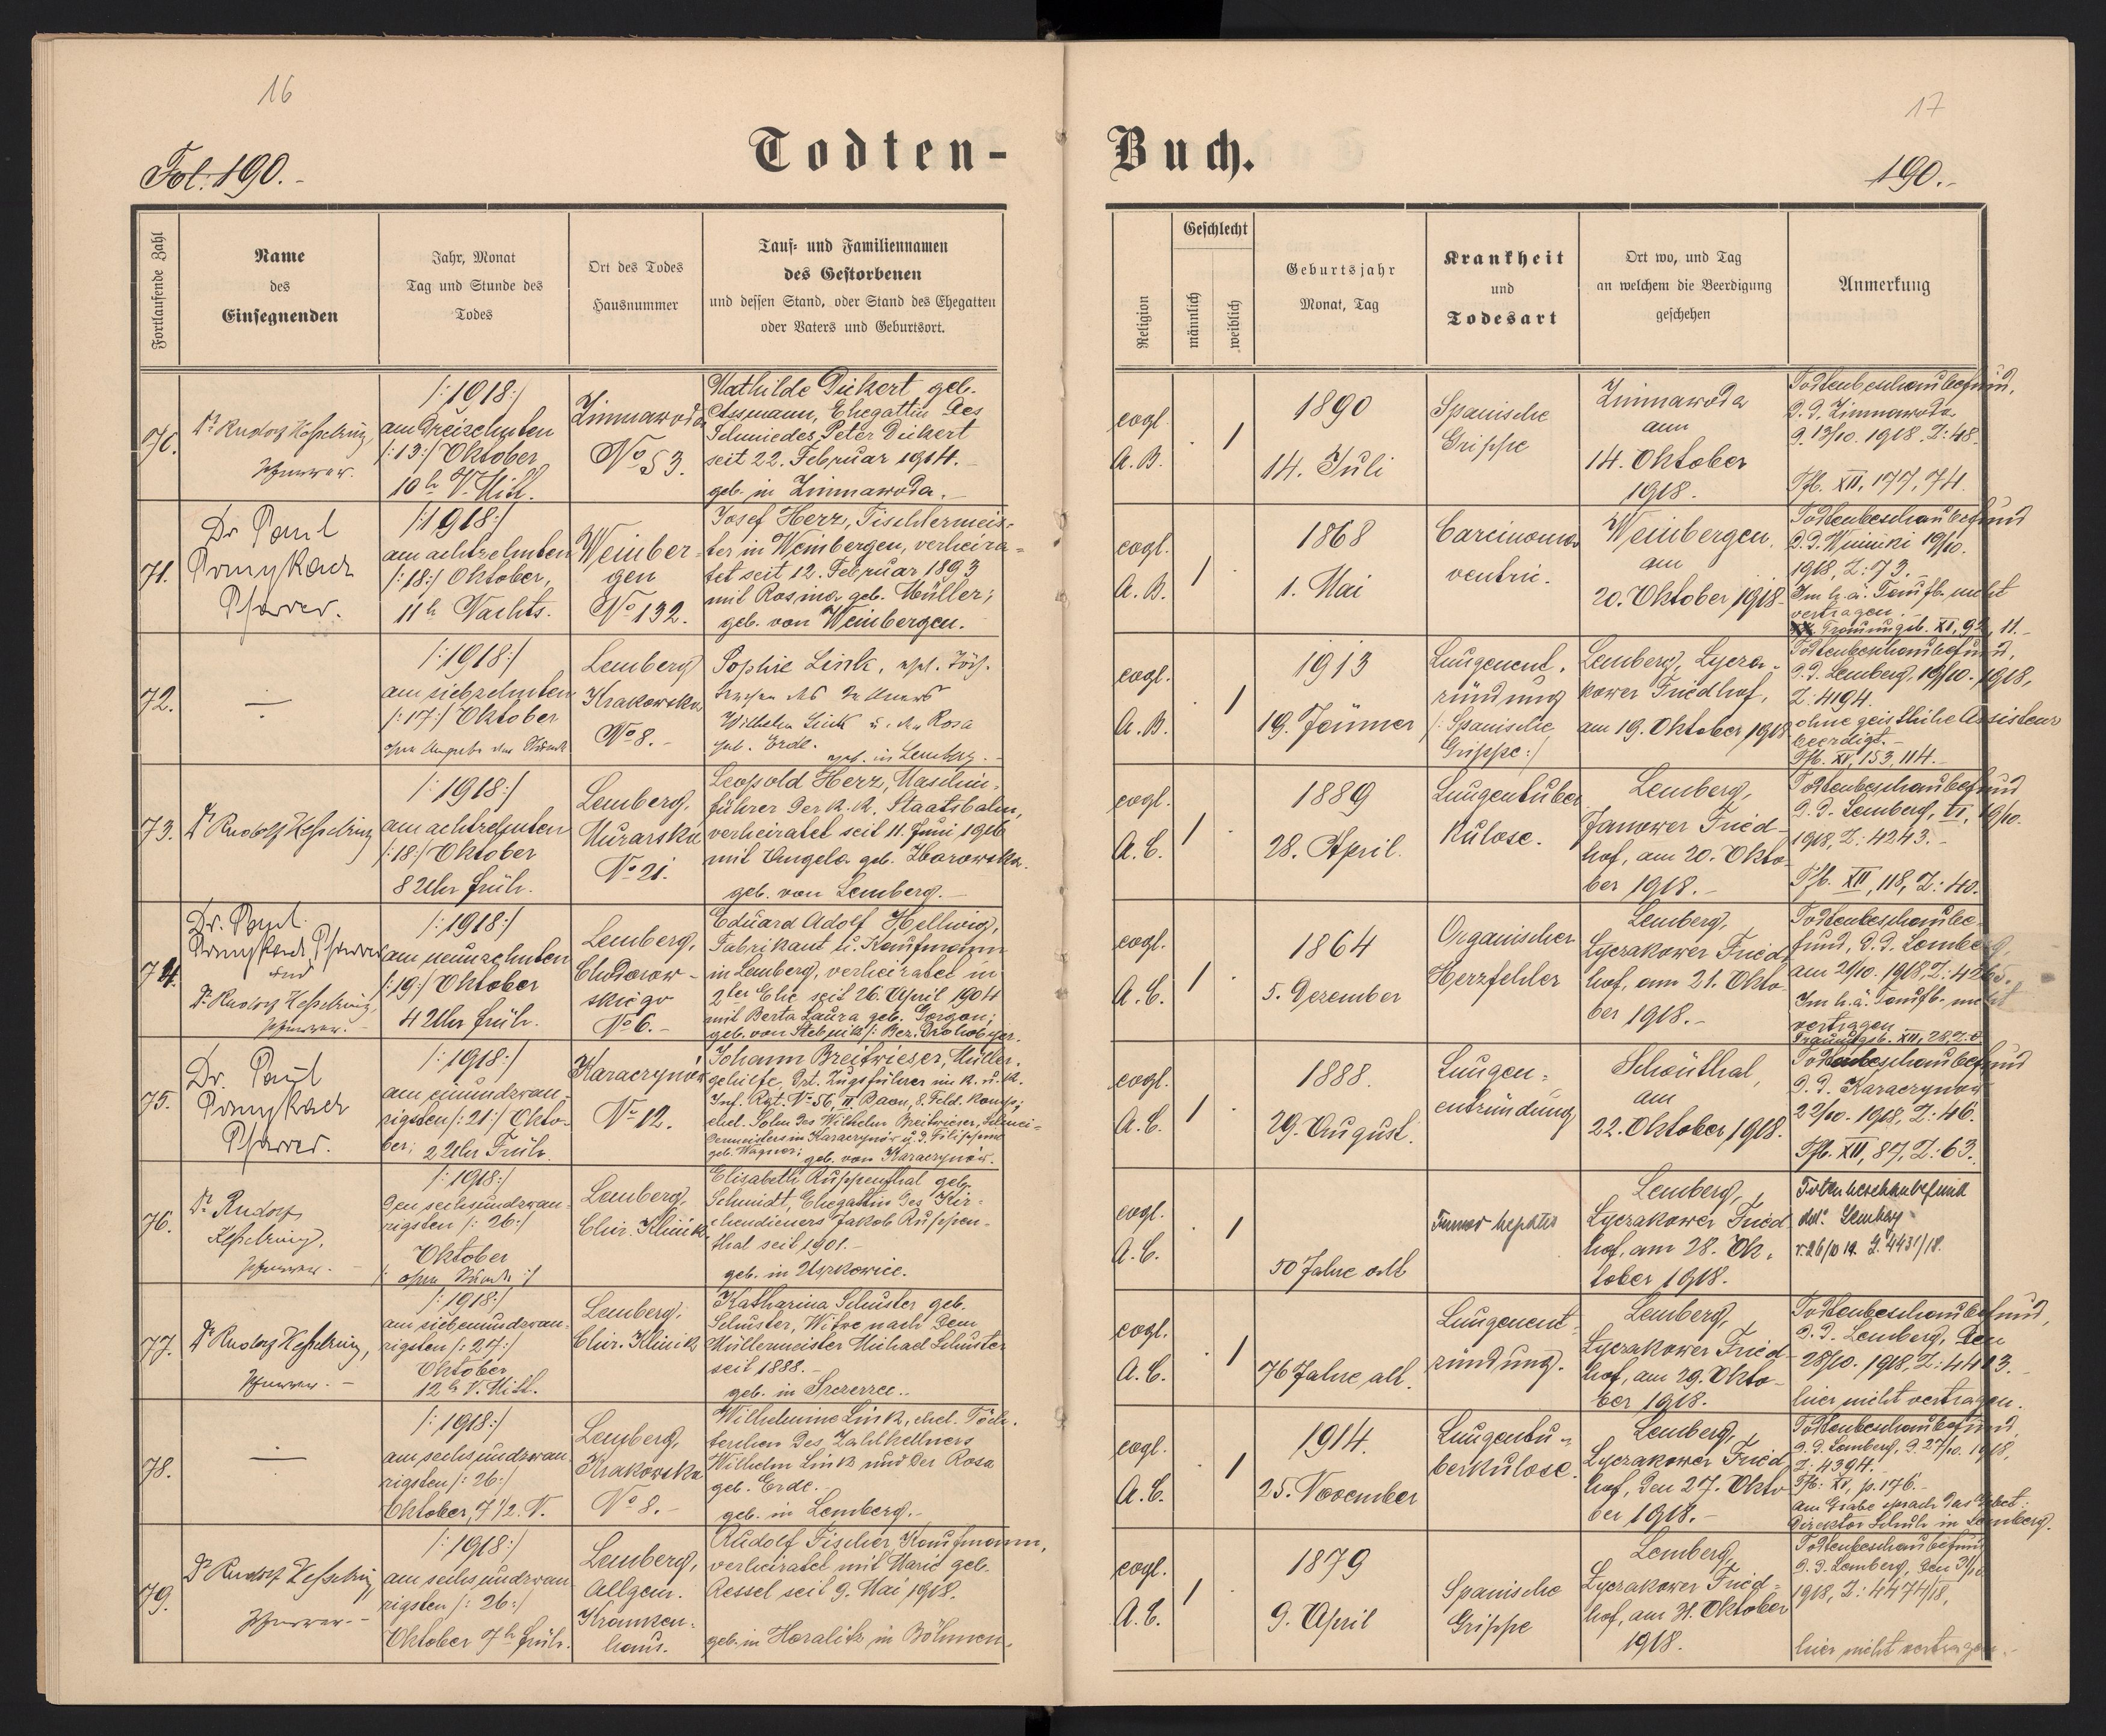 16
17
Todten-
Buch.
Fol: 190.-
190.-
Fortlaufende Zahl
Name
des
Einsegnenden
Jahr, Monat
Tag und Stunde des
Todes
Ort des Todes
Hausnummer
Tauf- und Familiennamen
des Gestorbenen
und dessen Stand, oder Stand des Ehegatten
oder Vaters und Geburtsort.
Religion
Geschlecht
männlich
weiblich
Geburtsjahr
Monat, Tag
Krankheit
und
Todesart
Ort wo, und Tag
an welchem die Beerdigung
geschehen
Anmerkung
70.
Dr Rudolf Kesselring,
Pfarrer.
/:1918:/
am dreizehnten
/:13:/ Oktober
10h V. Mitt.
Zimnawoda
No 53.
Mathilde Dickert geb.
Assmann, Ehegattin des
Schmiedes Peter Dickert
seit 22. Februar 1914.
geb. in Zimnawoda.
evgl.
A. B.
1
1890
14. Juli
Spanische
Grippe
Zimnawoda
am
14. Oktober
1918.
Todtenbeschaubefund,
d. d. Zimnawoda
d. 13/10. 1918, Z: 48.
Tfb. XII, 177, 74.
71.
Dr Paul
Pomykacz
Pfarrer.
/:1918:/
am achtzehnten
/:18:/ Oktober,
11h Nachts.
Weinber-
gen
No 132.
Josef Herz, Tischlermeis-
ter in Weinbergen, verheira-
tet seit 12. Februar 1893
mit Rosina geb. Müller;
geb. von Weinbergen.
evgl.
A. B.
1
1868
1. Mai
Carcinoma
ventric.
Weinbergen,
am
20. Oktober 1918.
Todtenbeschaubefund
d. d. Winniki 19/10.
1918, Z: 73.-
Im h. ä. Taufb. nicht
vertragen.-
Trauungsb. XI, 92, 11.-
72.
—
/:1918:/
am siebzehnten
/:17:/ Oktober
ohne Angabe der Stunde
Lemberg
Krakowska
No 8.-
Sophie Link, ehel. Töch-
terchen des
Wilhelm Link u. der Rosa
geb. Erdl.
geb. in Lemberg.-
evgl.
A. B.
1
1913
19. Jänner
Lungenent-
zündung
/: Spanische
Grippe:/
Lemberg, Lycza-
kower Friedhof,
am 19. Oktober 1918
Todtenbeschaubefund,
d. d. Lemberg, 19/10. 1918,
Z: 4194.
ohne geistliche Assistenz
beerdigt.-
Tfb. XV, 153, 114.-
73.
Dr Rudolf Kesselring
/:1918:/
am achtzehnten
/:18:/ Oktober
8 Uhr früh.
Lemberg,
Murarska
No 21.
Leopold Herz, Maschin-
führer der k. k. Staatsbahn,
verheiratet seit 11. Juni 1916
mit Angela geb. Harowska.
geb. von Lemberg.-
evgl.
A. C.
1
1889
28. April.
Lungentuber
kulose.
Lemberg,
Janower Fried-
hof, am 20. Okto-
ber 1918.-
Todtenbeschaubefund
d. d. Lemberg, VI, 19/10.
1918, Z: 4243.-
Tfb. XII, 118, Z: 40.
74.
Dr. Paul
Pomykacz, Pfarrer
und
Dr Rudolf Kesselring,
Pfarrer.-
/:1918:/
am neunzehnten
/:19:/ Oktober
4 Uhr früh.
Lemberg,
Chodorow-
skiego
No 6.-
Eduard Adolf Hellwig,
Fabrikant u. Kaufmann
in Lemberg, verheiratet in
2ter Ehe seit 26. April 1904
mit Berta Laura geb. Gorgon;
geb. von Stebnik /: Bez. Drohobycz.
evgl.
A. C.
1
1864
5. Dezember
Organischer
Herzfehler
Lemberg,
Lyczakower Fried
hof, am 21. Okto-
ber 1918.-
Todtenbeschaube-
fund, d. d. Lemberg,
am 21/10. 1918, Z: 4265.
Im h. ä. Taufb. nicht
vertragen
Trauungsb. XII, 28, Z. 6.
75.
Dr. Paul
Pomykacz
Pfarrer.
/:1918:/
am einundzwan-
zigsten /:21:/ Okto-
ber; 2 Uhr Früh.
Karaczynów
No 12.
Johann Breitwieser, Müller-
gehilfe, Zugsführer im k. u. k.
Inf. Rgt. No 56, II Baon, 8. Feld. Komp;
ehel. Sohn des Wilhelm Breitwieser, Schmei-
dermeisters in Karaczynów u. d. Filippine
geb. Wagner; geb. von Karaczynów.
evgl.
A. C.
1
1888.
29. August.
Lungen-
entzündung
Schönthal,
am
22. Oktober 1918.
Todtenbeschaubefund
d. d. Karaczynów
22/10. 1918, Z: 46.
Tfb. XII, 87, Z: 63.
76.
Dr Rudolf
Kesselring,
Pfarrer.-
/:1918:/
den sechsundzwan-
zigsten /:26:/
Oktober
/: ohne Stunde :/
Lemberg,
Chir. Klinik
Elisabeth Ruppenthal geb.
Schmidt, Ehegattin des Kir-
chendieners Jakob Ruppen-
thal seit 1901.-
geb. in Uszkowice.
evgl.
A. C.
1
50 Jahre alt
Tumor hepatis
Lemberg,
Lyczakower Fried
hof, am 28. Ok-
tober 1918.
Totenbeschaubefund
dd. Lemberg
v. 26/10 18. Z. 4431/18.
77.
Dr Rudolf Kesselring,
Pfarrer.-
/:1918:/
am siebenundzwan-
zigsten /:27:/
Oktober
12h V. Mitt.
Lemberg,
Chir. Klinik
Katharina Schuster geb.
Schuster, Witwe nach dem
Müllermeister Michael Schuster
seit 1888.-
geb. in Szczerzec..
evgl.
A. C.
1
76 Jahre alt.
Lungenent-
zündung.
Lemberg,
Lyczakower Fried-
hof, am 29. Okto-
ber 1918.
Todtenbeschaubefund,
d. d. Lemberg, den
28/10. 1918, Z: 4413.
hier nicht vertragen.
78.
—
/:1918:/
am sechsundzwan
zigsten /:26:/
Oktober, 7 1/2. N.
Lemberg,
Krakowska
No 8.-
Wilhelmine Link, ehel. Töch-
terchen des Zahlkellners
Wilhelm Link und der Rosa
geb. Erdl.-
geb. in Lemberg.-
evgl.
A. C.
1
1914.
25. November
Lungentu-
berkulose.
Lemberg,
Lyczakower Fried
hof, den 27. Okto
ber 1918.-
Todtenbeschaubefund,
d. d. Lemberg, d. 27/10. 1918,
Z: 4394.-
Tfb: XV, p. 176.-
am Grabe sprach das Gebet:
Direktor Schulz in Lemberg.
79.
Dr Rudolf Kesselring
Pfarrer.-
/:1918:/
am sechsundzwan
zigsten /:26:/
Oktober 7h früh.
Lemberg,
Allgem.
Kranken-
haus.
Rudolf Fischer, Kaufmann,
verheiratet mit Marie geb.
Ressel seit 9. Mai 1918.
geb. in Horalitz in Böhmen.
evgl.
A. C.
1
1879
9. April
Spanische
Grippe
Lemberg,
Lyczakower Fried-
hof, am 31. Oktober
1918.
Todtenbeschaubefund
d. d. Lemberg, den 31/10
1918, Z: 4474/18,
hier nicht vertragen.-